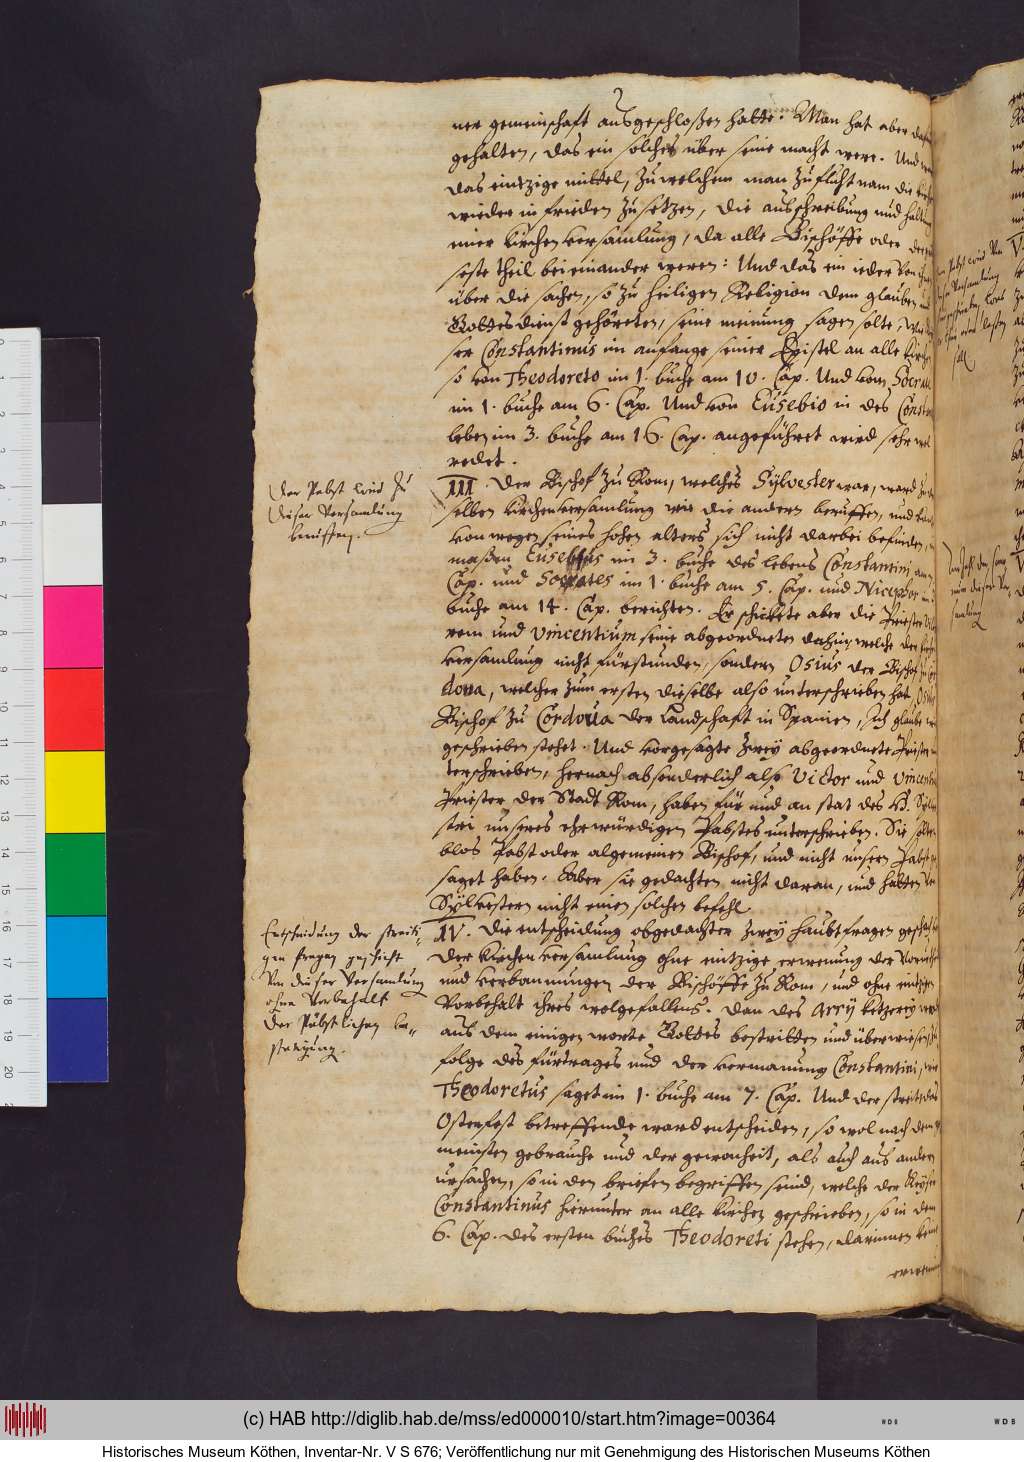 2
ner gemeinschaft ausgeschloßen hatte: Man hat aber
gehalten, das ein solches über seine macht were. Und
das eintzige mittel, zu welchem man zuflucht nam die
wieder in frieden zu setzen, die ausschreibung und
einer kirchen versamlung, da alle Bischöffe oder der
seste theil bei einander weren: Und das ein ieder von
über die sachen, so zu heiligen Religion dem glauben
Gottesdienst gehöreten, seine meinung sagen solte,
ser Constantinus im anfange seiner Epistel an alle
so von Theodoreto im 1. buche am 10. Cap. Und vom
im 1. buche am 6. Cap. Und von Eusebio in des
leben im 3. buche am 16. Cap. angeführet wird sehr wol
redet.
Der Pabst wird zu
dieser Versamlung
beruffen.
III. Der Bischof zu Rom, welches Sylvester war, ward
selben kirchenversamlung wie die andern beruffen, und
von wegen seines hohen alters sich nicht darbei befinden,
maßen Eusebius im 3. buche des lebens Constantini am
Cap. und Socrates im 1. buche am 5. Cap. und
buche am 14. Cap. berichten. Er schickte aber die Priester
und Vincentium seine abgeordneten dahin, welche der
versamlung nicht fürstunden, sondern Osius der Bischof zu
dova, welcher zum ersten dieselbe also unterschrieben hat,
Bischof zu Cordova der Landschaft in Spanien, Ich glaube
geschrieben stehet. Und vorgesagte zwey abgeordnete Priester
terschrieben, hernach absonderlich also Victor und
Priester der Stadt Rom, haben für und an stat des
stri unseres ehrwürdigen Pabstes unterschrieben. Sie solten
blos Pabst oder algemeinen Bischof, und nicht unsern Pabst
saget haben. Aber sie gedachten nicht daran, und hatten
Sylvestern nicht einen solchen befehl.
Entscheidung der streiti-
gen fragen geschicht
Von dieser Versamlung
ohne Vorbehalt
der Päbstlichen be-
stätigung.
IV. Die entscheidung obgedachter zwey haubtfragen
der kirchen versamlung ohne eintzige erwenung der
und verbannungen der Bischöffe zu Rom, und ohne eintzigen
Vorbehalt ihres wolgefallens. Dan des Arrij ketzerey ward
aus dem einigen worte Gottes bestritten und überwiesen,
folge des fürtrages und der vermanung Constantini, wie
Theodoretus saget im 1. buche am 7. Cap. Und der streit das
Osterfest betreffende ward entscheiden, so wol nach dem
meinsten gebrauche und der gewonheit, als auch aus andern
ursachen, so in den briefen begriffen seind, welche der
Constantinus hierunter an alle kirchen geschrieben, so in dem
6. Cap. des ersten buches Theodoreti stehen, darinnen
(c) HAB http://diglib.hab.de/mss/ed000010/start.htm?image=00364
Historisches Museum Köthen, Inventar-Nr. V S 676; Veröffentlichung nur mit Genehmigung des Historischen Museums Köthen